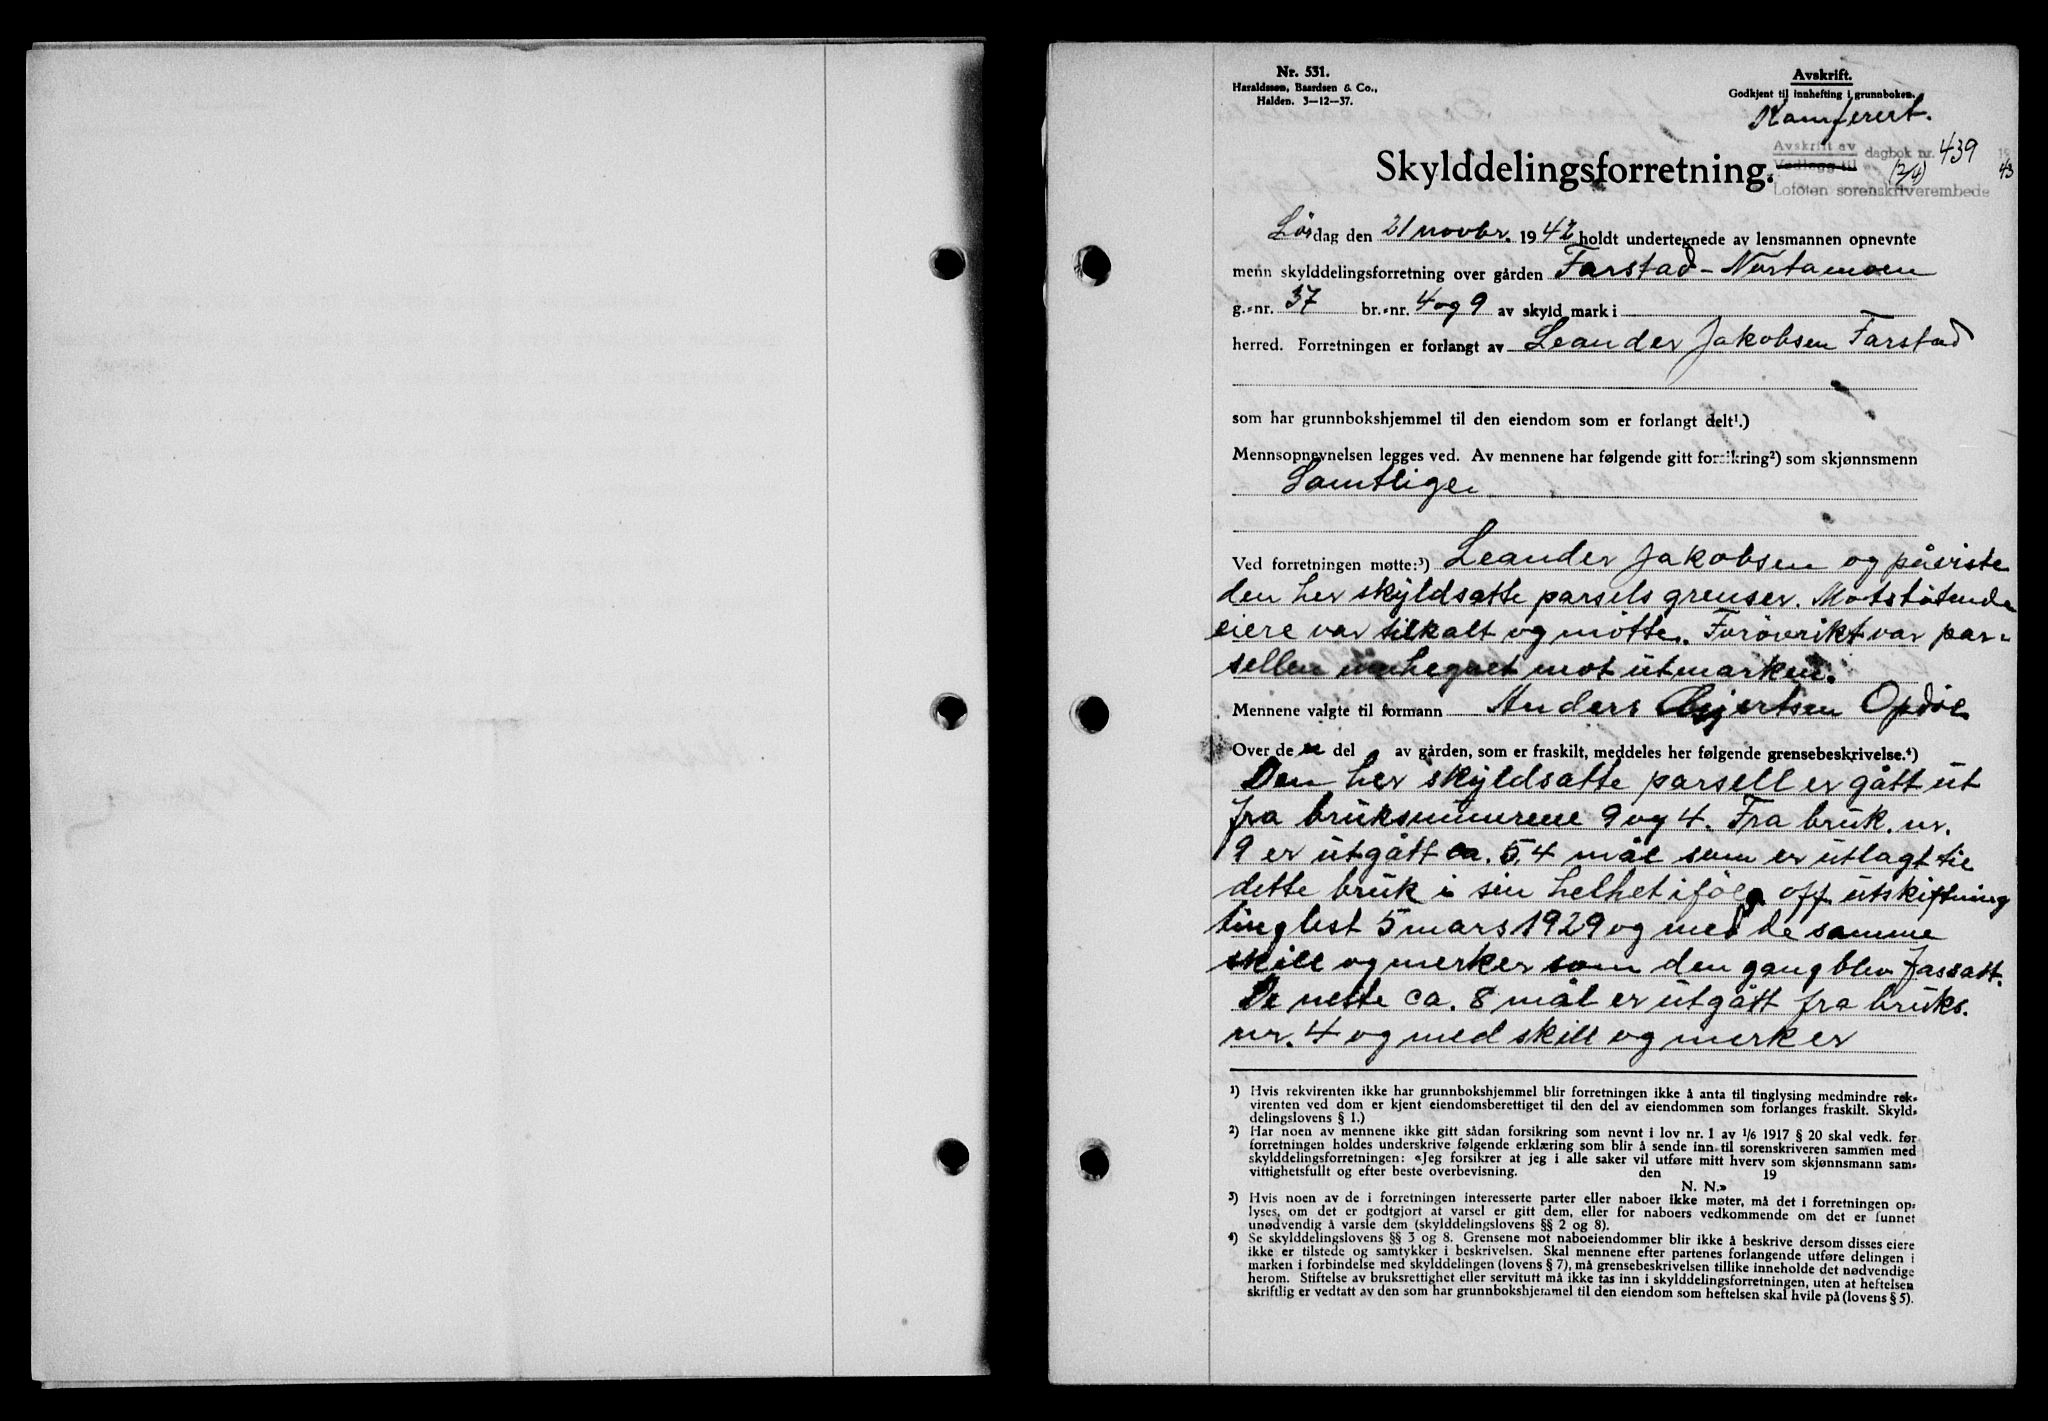 Nr. 531.
Haraldssøn, Baardsen & Co.,
Halden. 3—12—37.
Avskrift.
Godkjent til innhefting i grunnboken.
Konferert.
Avskrift av
Vedlegg til dagbok nr. 439 19 43
(2/4)
Lofoten sorenskriverembede
Skylddelingsforretning.
Lørdag den 21 novbr. 1942 holdt undertegnede av lensmannen opnevnte
menn skylddelingsforretning over gården Farstad - Nortamoen
g.-nr. 37 br.-nr. 4 og 9 av skyld mark i
herred. Forretningen er forlangt av Leander Jakobsen Farstad
som har grunnbokshjemmel til den eiendom som er forlangt delt¹.)
Mennsopnevnelsen legges ved. Av mennene har følgende gitt forsikring²) som skjønnsmenn
Samtlige
Ved forretningen møtte:³) Leander Jakobsen og påviste
den her skyldsatte parsels grenser. Motstøtende
eiere var tilkalt og møtte. Forøvrikt var par-
sellen mot utmarken.
Mennene valgte til formann Anders Opdøl
Over den del av gården, som er fraskilt, meddeles her følgende grensebeskrivelse.⁴)
Den her skyldsatte parsell er gått ut
fra bruksnumrene 9 og 4. Fra bruk. nr.
9 er utgått ca. 5,4 mål som er utlagt til
dette bruk i sin helhet ifølg off utskiftning
tinglest 5 mars 1929 og med de samme
skill og merker som den gang blev fassatt.
De nette ca. 8 mål er utgått fra bruks.
nr. 4 og med skill og merker
¹) Hvis rekvirenten ikke har grunnbokshjemmel blir forretningen ikke å anta til tinglysing medmindre rek-
virenten ved dom er kjent eiendomsberettiget til den del av eiendommen som forlanges fraskilt. Skyld-
delingslovens § 1.)
²) Har noen av mennene ikke gitt sådan forsikring som nevnt i lov nr. 1 av 1/6 1917 § 20 skal vedk. før
forretningen holdes underskrive følgende erklæring som blir å sende inn til sorenskriveren sammen med
skylddelingsforretningen: «Jeg forsikrer at jeg i alle saker vil utføre mitt hverv som skjønnsmann sam-
vittighetsfullt og efter beste overbevisning. den 19
N. N.»
³) Hvis noen av de i forretningen interesserte parter eller naboer ikke møter, må det i forretningen op-
lyses, om det er godtgjort at varsel er gitt dem, eller for naboers vedkommende om det er funnet
unødvendig å varsle dem (skylddelingslovens §§ 2 og 8).
⁴) Se skylddelingslovens §§ 3 og 8. Grensene mot naboeiendommer blir ikke å beskrive dersom disses eiere
ikke er tilstede og samtykker i beskrivelsen. Skal mennene efter partenes forlangende utføre delingen i
marken i forbindelse med skylddelingen (lovens § 7), må grensebeskrivelsen tillike inneholde det nødvendige
herom. Stiftelse av bruksrettighet eller servitutt må ikke tas inn i skylddelingsforretningen, uten at heftelsen
skriftlig er vedtatt av den som har grunnbokshjemmel til den eiendom som heftelsen skal hvile på (lovens § 5).